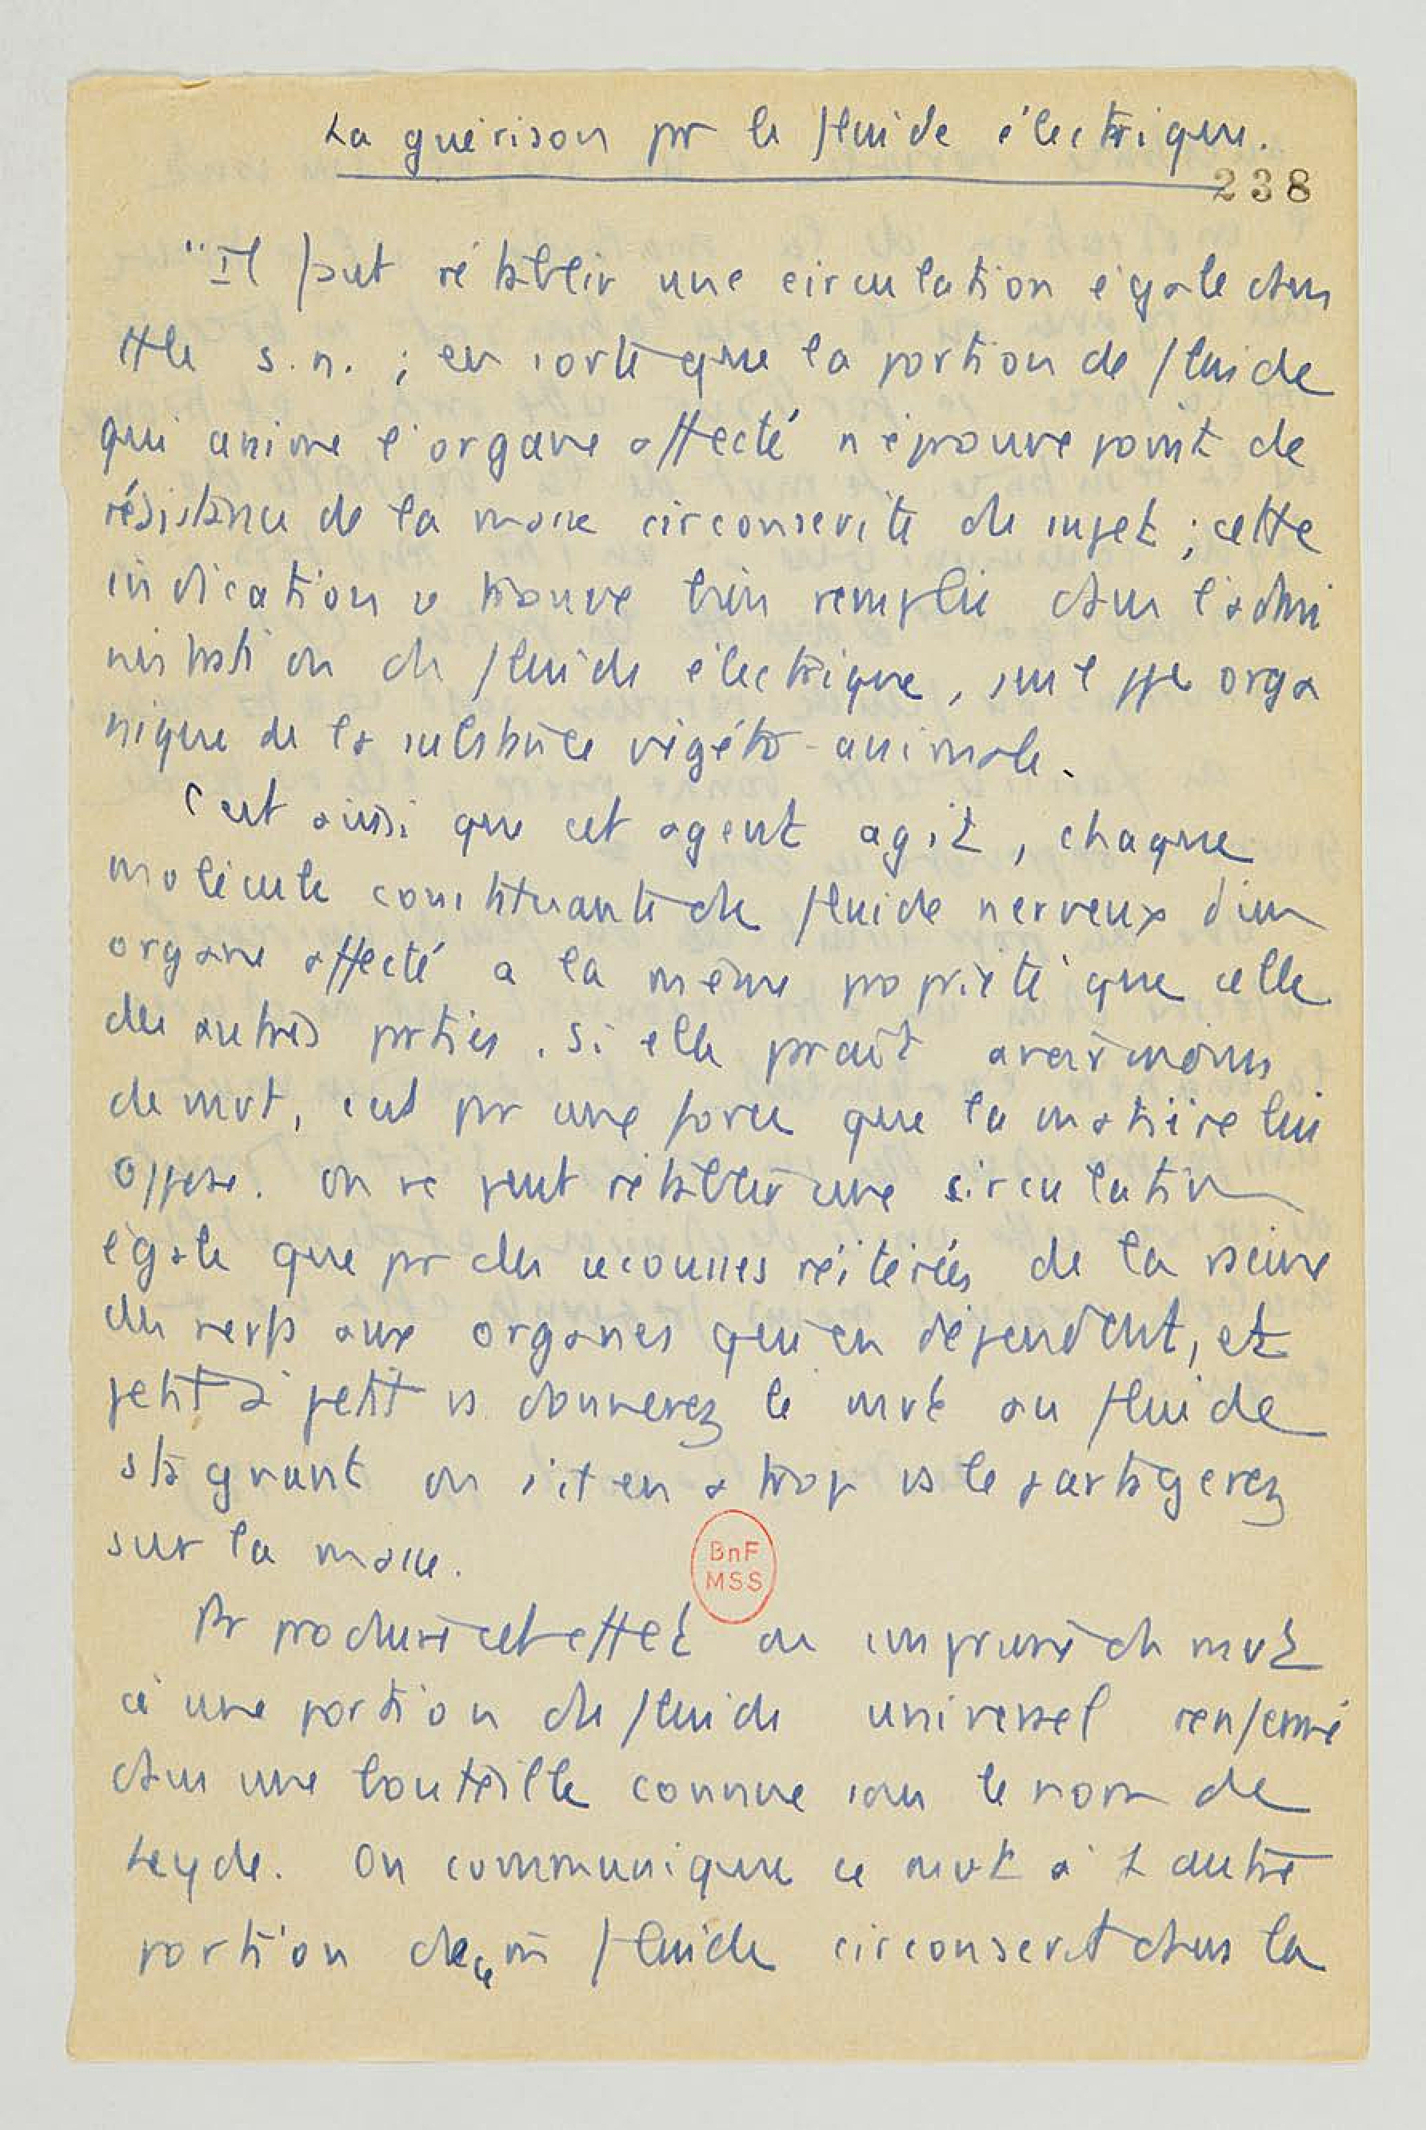 La guérison pr le fluide électrique.
238
"Il faut rétablir une circulation égale dans
tt le s.n. ; en sorte que la portion de fluide
qui anime l'organe affecté n'éprouve point de
résistance de la masse circonscrite du sujet ; cette
indication se trouve bien remplie dans l'admi
nistration du fluide électrique, sur l' orga
nique de la substance végéto-animale.
C'est ainsi que cet agent agit, chaque
molécule constituante du fluide nerveux d'un
organe affecté a la même propriété que celle
des autres parties. Si elle paraît avoir moins
de mvt, c'est pr une force que la matière lui
oppose. On ne peut rétablir une circulation
égale que pr des secousses réitérées de la racine
des nerfs aux organes qui en dépendent, et
petit à petit vs donnerez le mvt au fluide
stagnant ou s'il en a trop vs le partagerez
sur la masse.
Pr produire cet effet on imprime du mvt
à une portion du fluide universel renfermé
dans une bouteille connue sous le nom de
Leyde. On communique ce mvt à 1 autre
portion de ce m̄ fluide circonscrit dans la
BnF
MSS